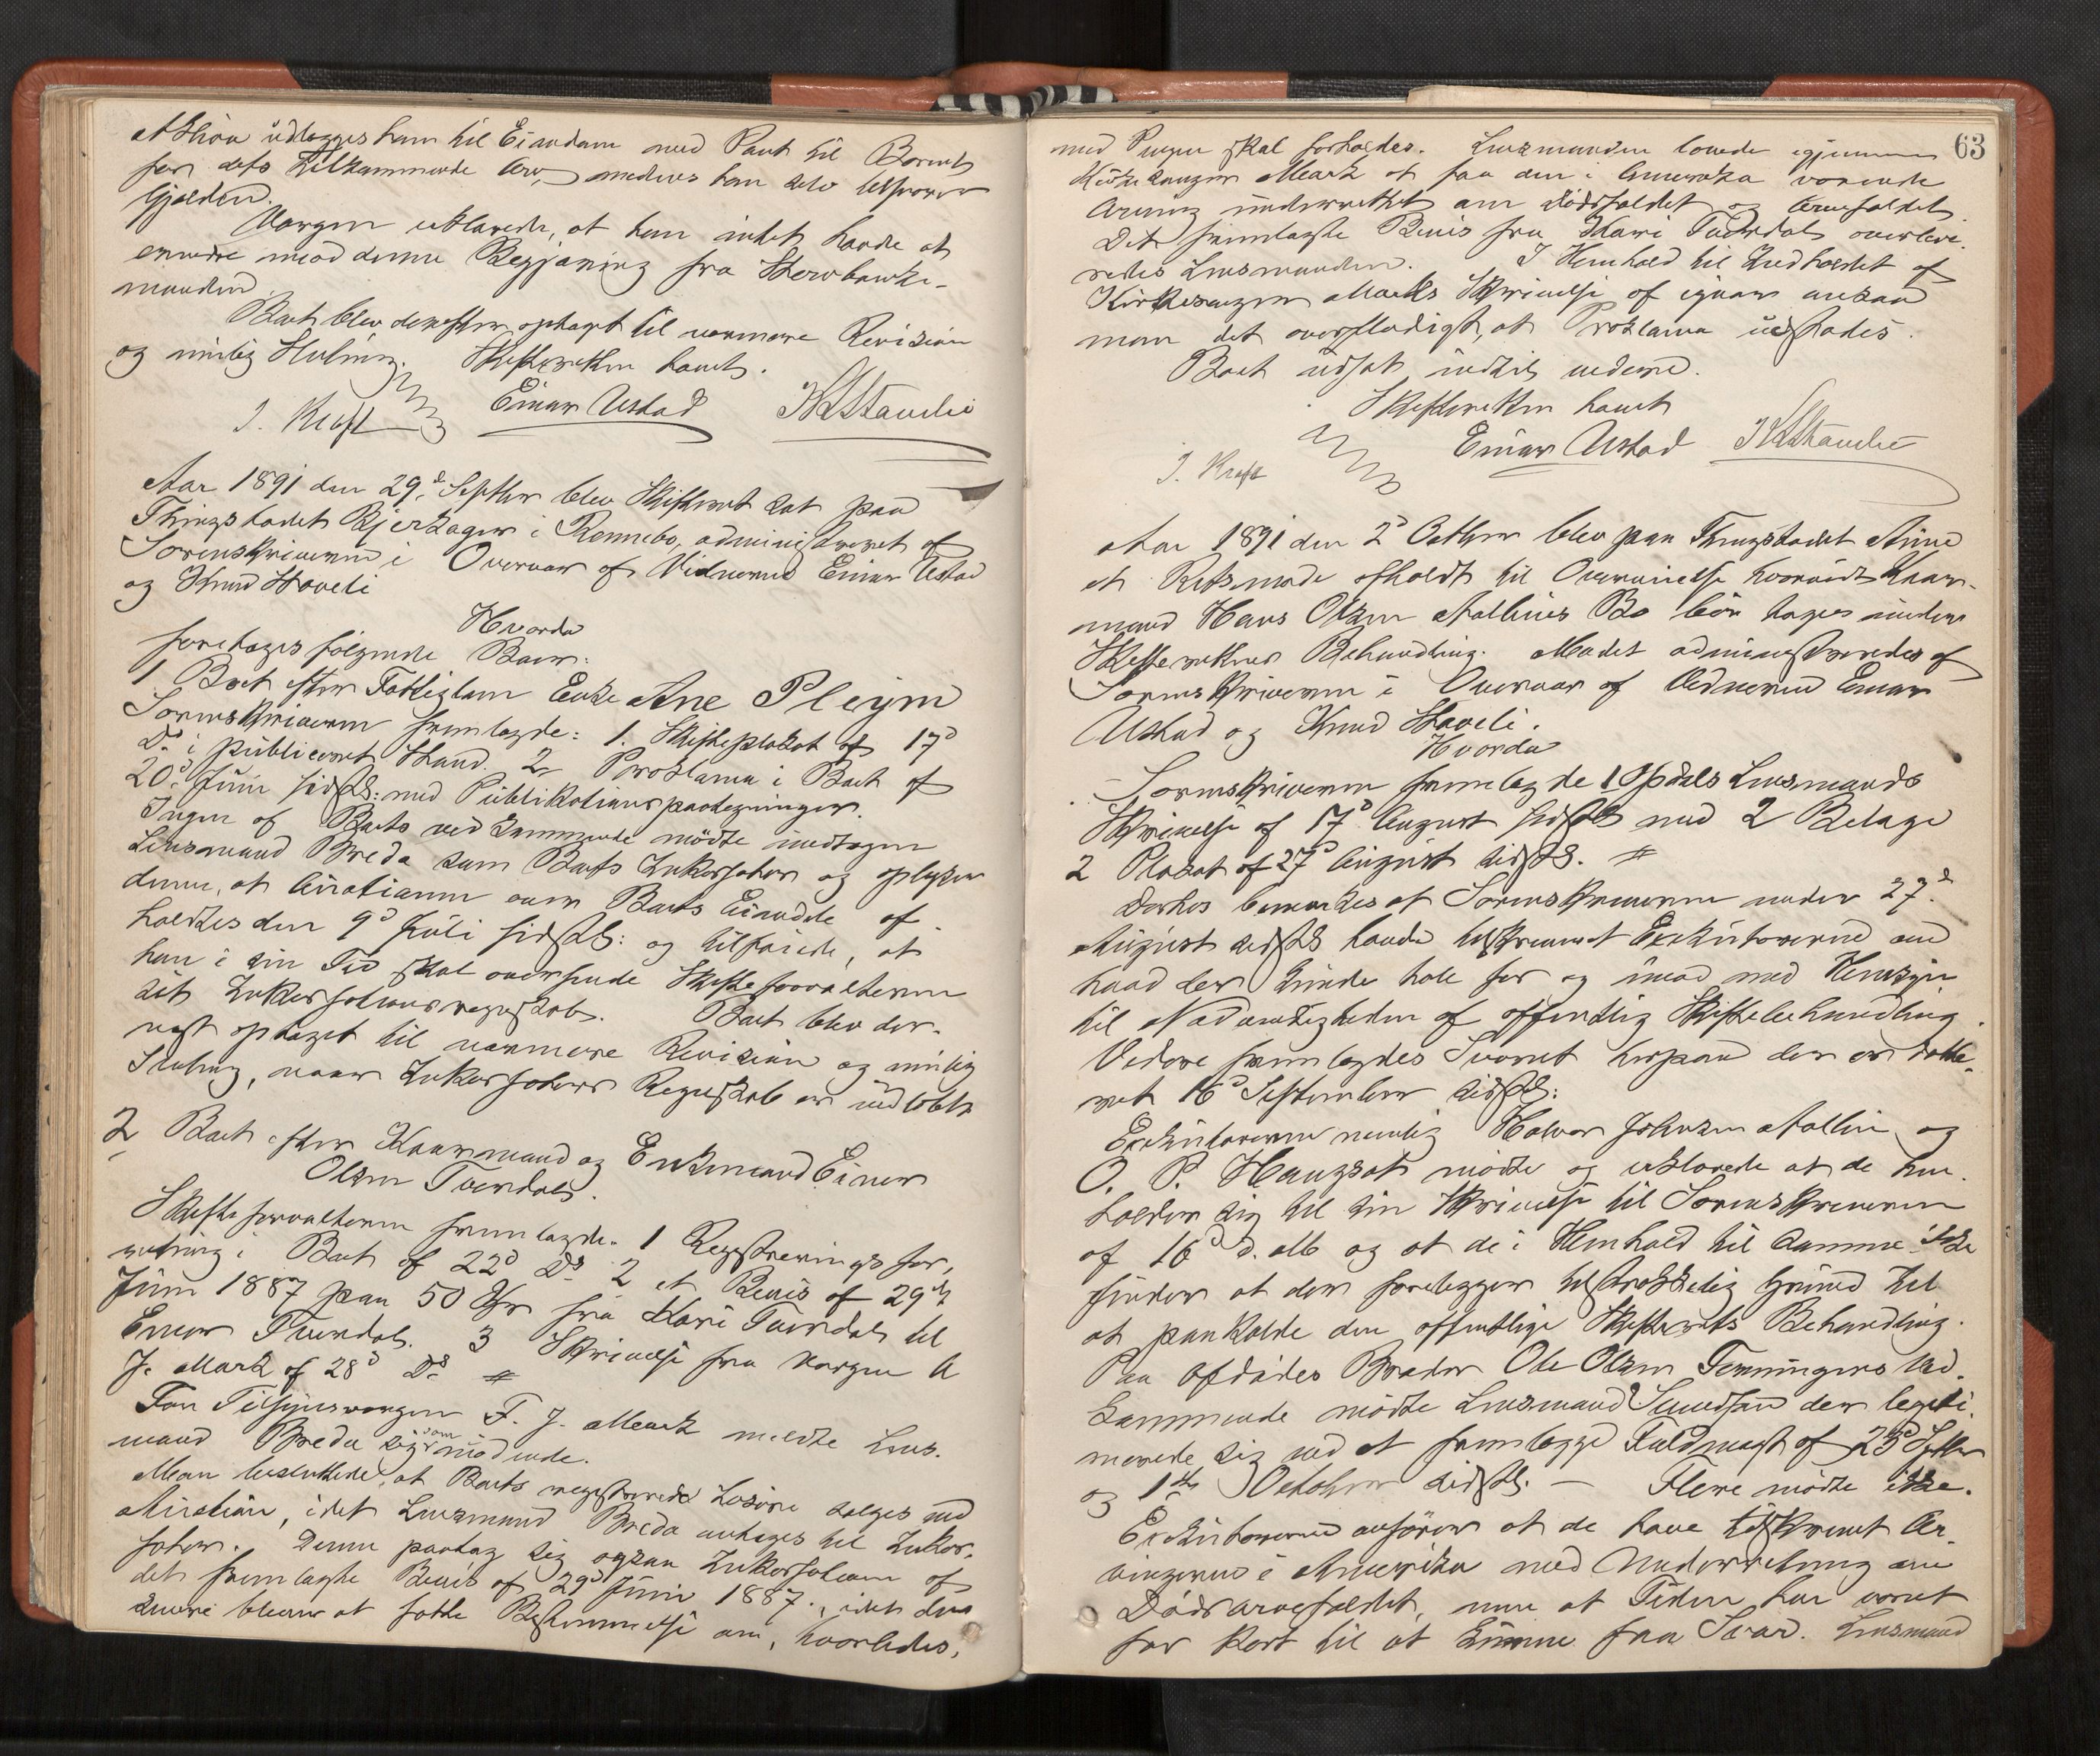 Aktion udlægges ham til Eiendom med Pant til Barnets
for dets tilkommende Arv, medens han selv tilsvarer
Gjælden.
Værgen erklærede, at han intet havde at
erindre mod denne Begjæring fra Sterbboets-
manden.
Boet blev derefter optaget til nærmere Revision
og endelig Slutning. Skifteretten hævet.
J. Kraft Einar Ustad K Staveli
Aar 1891 den 29d Septbr blev Skifteret sat paa
Thingstedet Bjerkager i Rennebo, administreret af
Sorenskriveren i Overvær af Vidnerne Einar Ustad
og Knud Staveli
Hvorda
foretoges følgende Boer:
1 Boet efter Fattiglem Enke Ane Pleym
Sorenskriveren fremlagde: 1. Skifteplakat af 17d
Ds. i publiceret Stand. 2. Proklama i Boet af
20d Juni sidstl: med Publikationspaategninger.
Ingen af Boets vedkommende mødte undtagen
Lensmand Breda som Boets Inkassator og oplyser
denne, at Auctionen over Boets Eiendele af-
holdtes den 9d Juli sidstl: og tilføiede, at
han i sin Tid skal oversende Skifteforvalteren
sit Inkassationsregnskab. Boet blev der-
næst optaget til nærmere Revision og endelig
Slutning, naar Inkassators Regnskab er indløbet
2 Boet efter Kaarmand og Enkemand Einer
Olsen Tverdal.
Skifteforvalteren fremlagde: 1 Registreringsfor-
retning i Boet af 22d Ds. 2 et Bevis af 29de
Juni 1887 paa 50 Kr fra Kari Tverdal til
Einer Tverdal. 3 Skrivelse fra Værgen
J. Mærk af 28d Ds. #
For Tilsynsværgen F. J. Mærk meldte Lens-
mand Breda sig som mødende.
Man besluttede, at Boets registrerede Løsøre sælges ved
Auction, idet Lensmand Breda antages til Inkas-
sator. Denne paatog sig ogsaa Inkassation af
det fremlagte Bevis af 29d Juni 1887, idet den
senere bliver at fatte Bestemmelse om, hvorledes,
63
med Pengene skal forholdes. Lensmanden lovede igjennem
Kirkesanger Mærk at faa den i Amerika værende
Arving underrettet om Dødsfaldet og Arvefaldet.
Det fremlagte Bevis fra Kari Tverdal overleve-
redes Lensmanden. I Henhold til Indholdet af
Kirkesanger Mærks Skrivelse af igaar ansaa
man det overflødigt, at Proklama udstedes.
Boet udsat indtil videre.
Skifteretten hævet
J. Kraft Einar Ustad K Staveli
Aar 1891 den 2d Octbr blev paa Thingstedet Aune
et Retsmøde afholdt til Overveielse hvorvidt Kaar-
mand Hans Olsen Mellins Bo bør tages under
Skifterettens Behandling. Mødet administreredes af
Sorenskriveren i Overvær af Vidnerne Einar
Ustad og Knud Staveli.
Hvorda
Sorenskriveren fremlagde 1 Opdals Lensmands
Skrivelse af 17d August sidstl med 2 Bilage
2 Plakat af 27d August sidstl. #
Derhos bemærkes at Sorenskriveren under 27d
August sidstl havde tilskrevet Exekutorerne om
hvad der kunde tale for og imod med Hensyn
til Nødvendigheden af offentlig Skiftebehandling.
Videre fremlagdes Svaret herpaa der er date-
ret 16d September sidstl:
Exekutorerne nemlig Halvor Johnsen Mellin og
O. P. Haugset mødte og erklærede at de hen-
holder sig til sin Skrivelse til Sorenskriveren
af 16d s. M. og at de i Henhold til samme ikke
finder at der foreligger tilstrækkelig Grund til
at paakalde den offentlige Skifterets Behandling.
Paa Afdødes Broder Ole Olsen Tenningens Ved-
kommende mødte Lensmand der legiti-
merede sig ved at fremlægge Fuldmagt af 25d Septbr
og 1ste October sidstl. — Flere mødte ikke.
Exekutorerne anfører at de have tilskrevet Ar-
vingerne i Amerika med Underretning om
Døds & Arvefaldet, men at Tiden har været
for kort til at kunne faa Svar. Lensmand